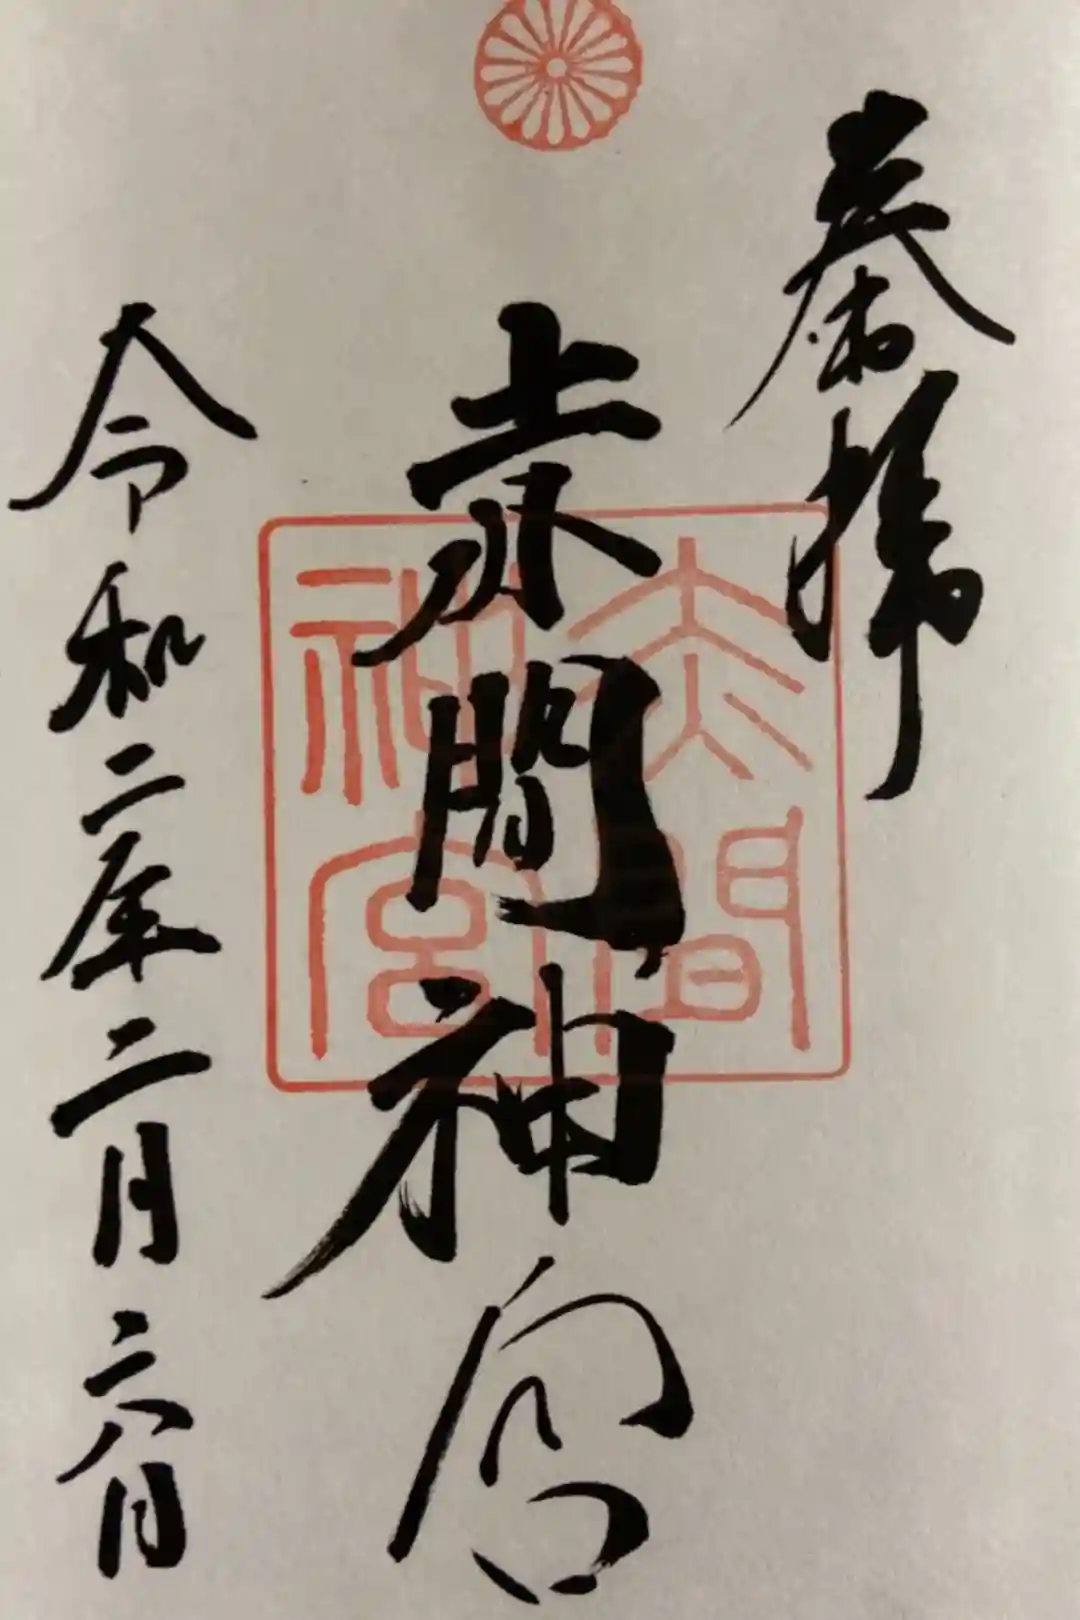 奉拝
赤間神宮
赤間
神宮
令和二年二月二八日